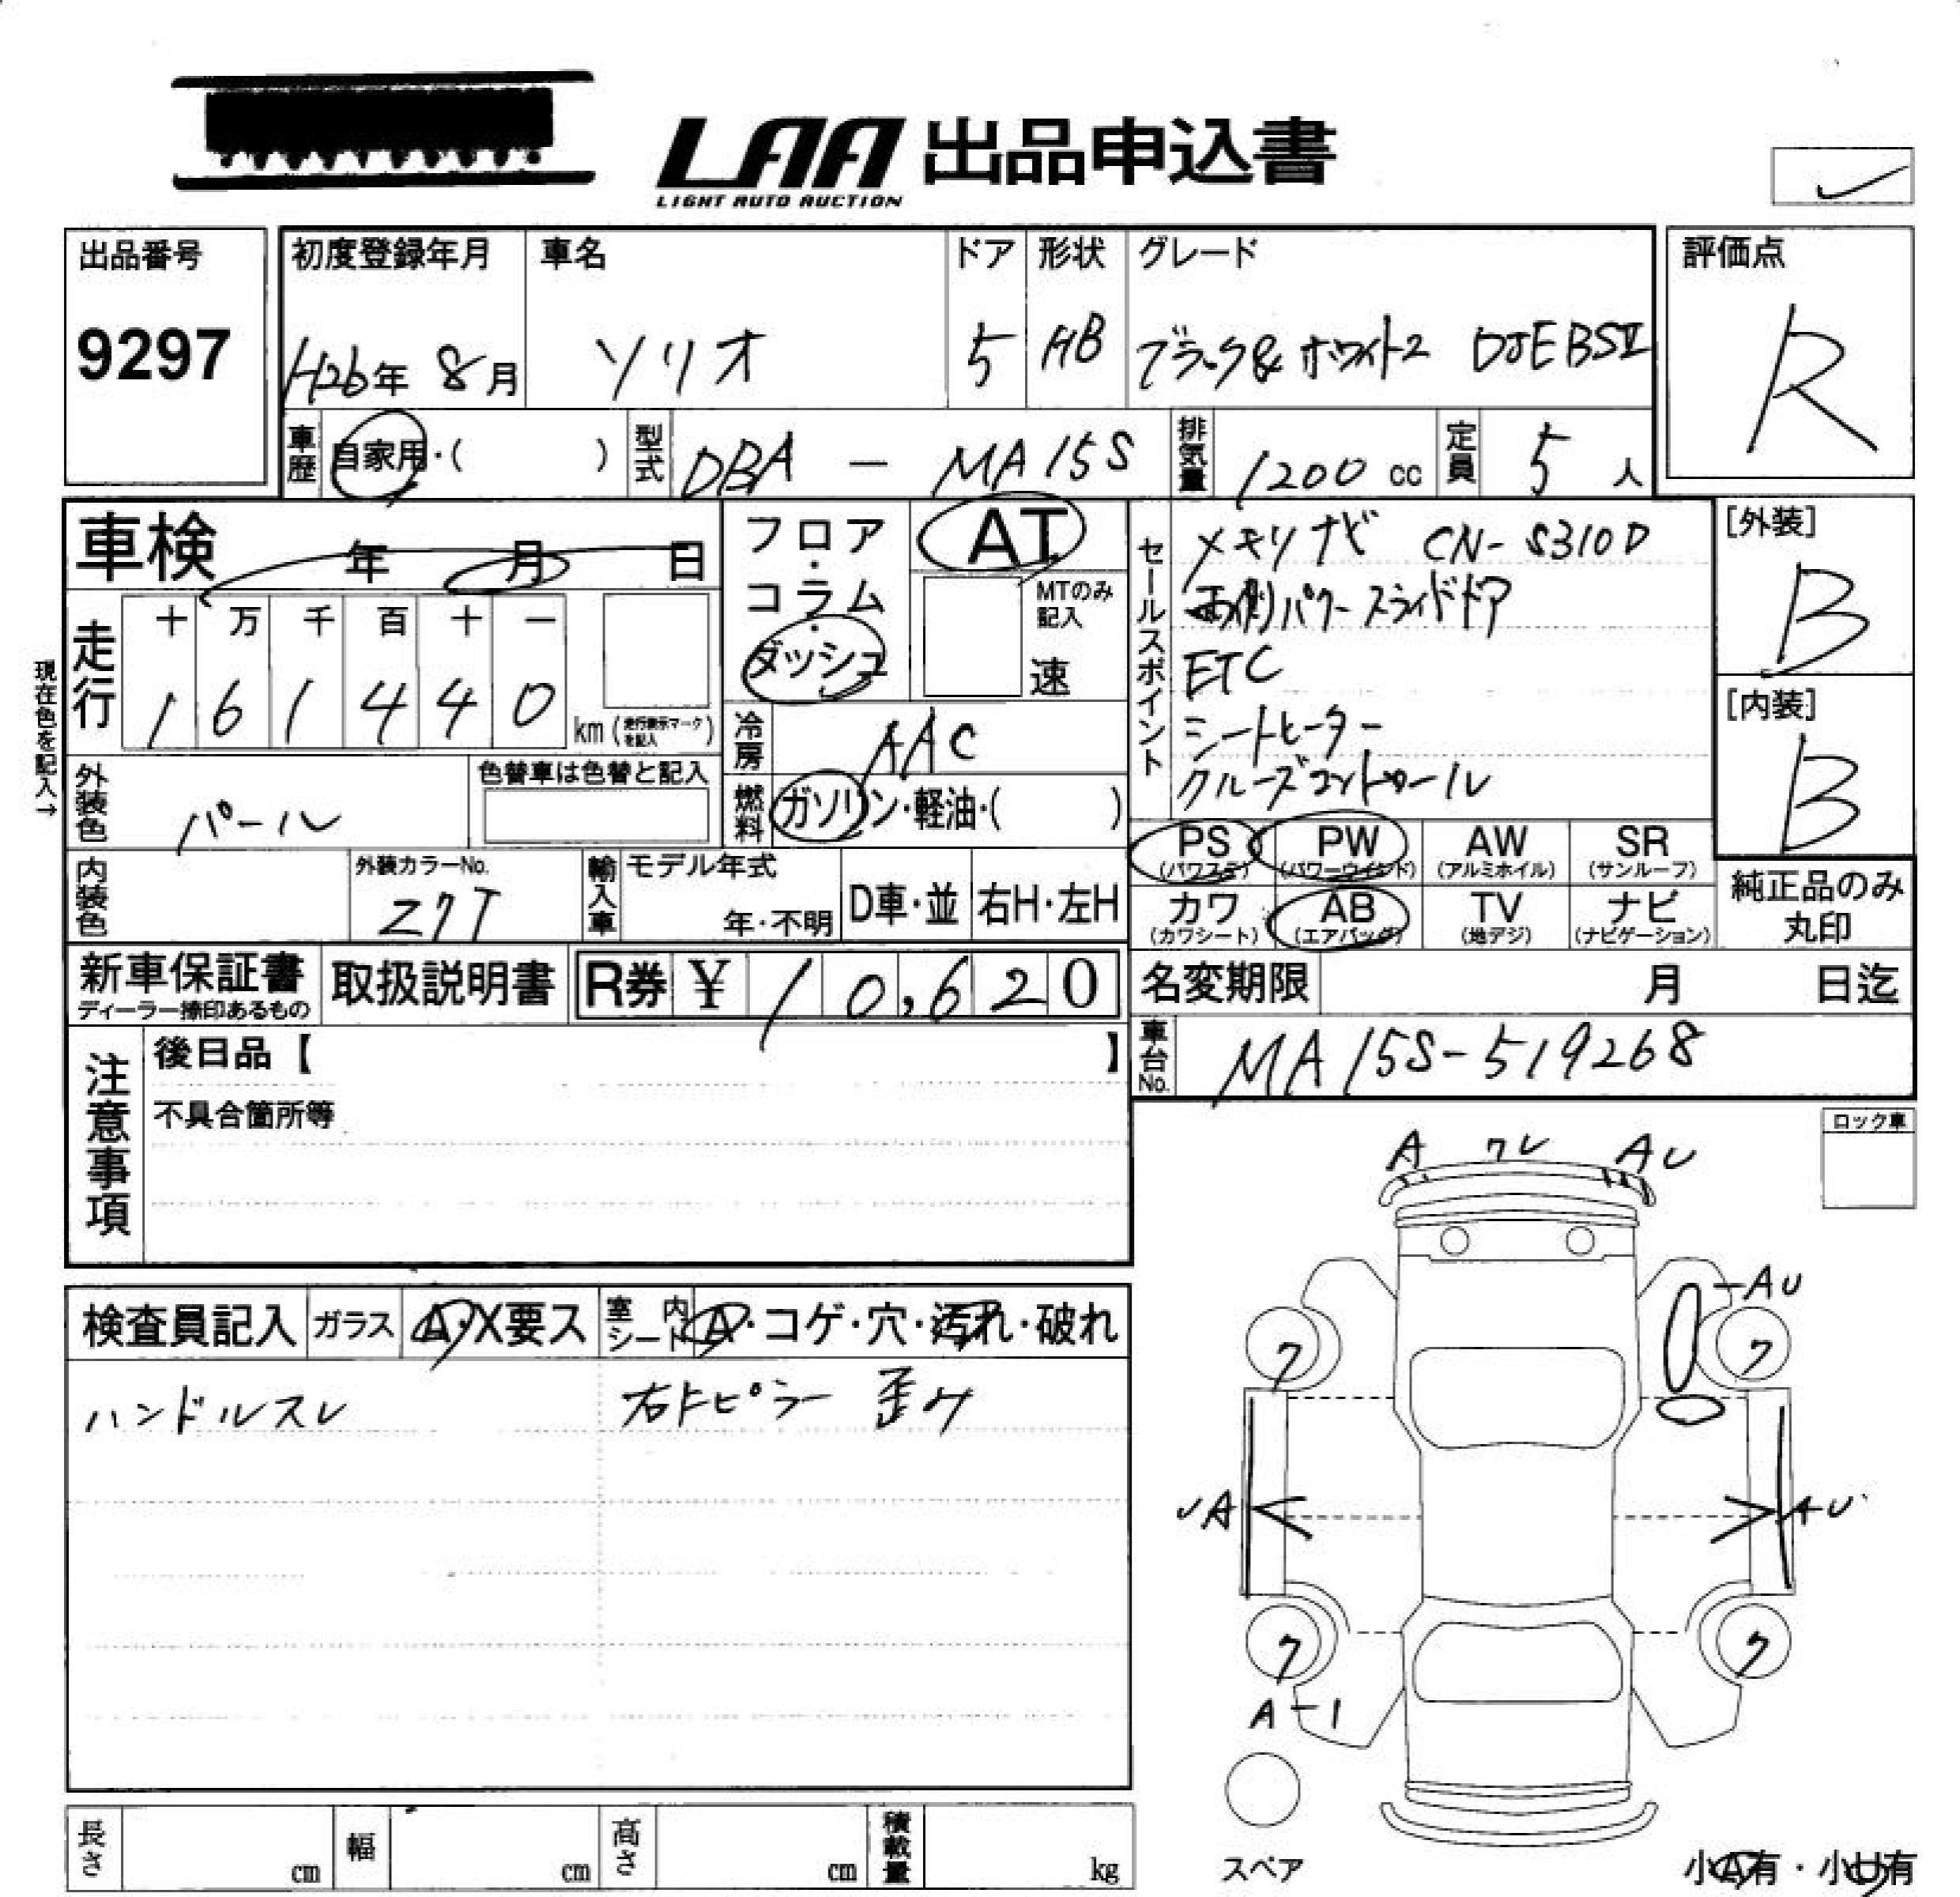 LAA 出品申込書
LIGHT AUTO AUCTION
出品番号
9297
初度登録年月
H26年 8月
車名
ソリオ
ドア
5
形状
HB
グレード
ブラック&ホワイト2 DJEBSⅡ
評価点
R
車歴 自家用・( )
型式 DBA - MA15S
排気量 1200 cc
定員 5 人
車検 年 月 日
フロア・コラム・ダッシュ
AT
MTのみ記入
速
走行
十 万 千 百 十 一
1 6 1 4 4 0
km (走行表示マークを記入)
現在色を記入→
冷房 AAC
燃料 ガソリン・軽油・( )
セールスポイント
メモリナビ CN-S310D
両側パワースライドドア
ETC
シートヒーター
クルーズコントロール
[外装]
B
[内装]
B
外装色 パール
色替車は色替と記入
PS (パワステ) PW (パワーウインド) AW (アルミホイル) SR (サンルーフ)
カワ (カワシート) AB (エアバッグ) TV (地デジ) ナビ (ナビゲーション)
純正品のみ丸印
内装色
外装カラーNo.
Z7T
輸入車
モデル年式
年・不明
D車・並
右H・左H
新車保証書
ディーラー捺印あるもの
取扱説明書
R券 ¥ 10,620
名変期限 月 日迄
車台No. MA15S-519268
注意事項
後日品【 】
不具合箇所等
ロック車
A ワレ AU
検査員記入 ガラス A・X要ス
室内シート A・コゲ・穴・汚れ・破れ
ハンドルスレ
右Fピラー 歪み
AU
ワ ワ
UA AU
ワ ワ
A-1
スペア
長さ cm
幅 cm
高さ cm
積載量 kg
小A有・小U有